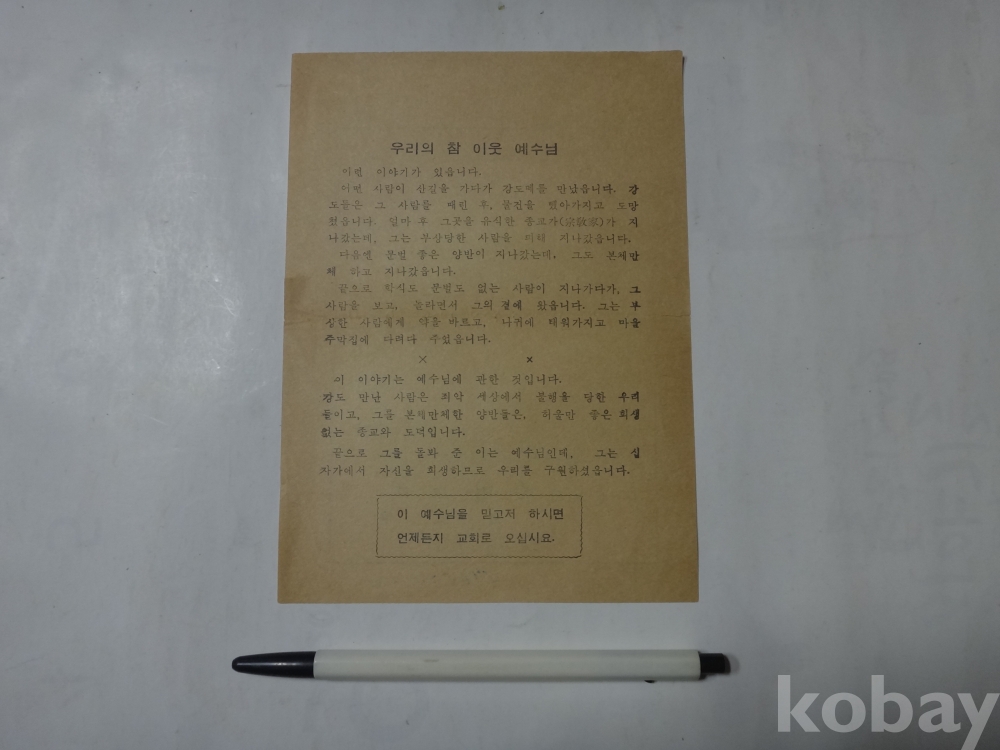 우리의 참 이웃 예수님
이런 이야기가 있읍니다.
어떤 사람이 산길을 가다가 강도떼를 만났읍니다. 강
도들은 그 사람를 때린 후, 물건을 뺏아가지고 도망
쳤읍니다. 얼마 후 그곳을 유식한 종교가(宗敎家)가 지
나갔는데, 그는 부상당한 사람을 피해 지나갔읍니다.
다음엔 문벌 좋은 양반이 지나갔는데, 그도 본체만
체 하고 지나갔읍니다.
끝으로 학식도 문벌도 없는 사람이 지나가다가, 그
사람을 보고, 놀라면서 그의 곁에 왔읍니다. 그는 부
상한 사람에게 약을 바르고, 나귀에 태워가지고 마을
주막집에 다려다 주었읍니다.
× ×
이 이야기는 예수님에 관한 것입니다.
강도 만난 사람은 죄악 세상에서 불행을 당한 우리
들이고, 그를 본체만체한 양반들은, 허울만 좋은 희생
없는 종교와 도덕입니다.
끝으로 그를 돌봐 준 이는 예수님인데, 그는 십
자가에서 자신을 희생하므로 우리를 구원하셨읍니다.
이 예수님을 믿고저 하시면
언제든지 교회로 오십시요.
kobay